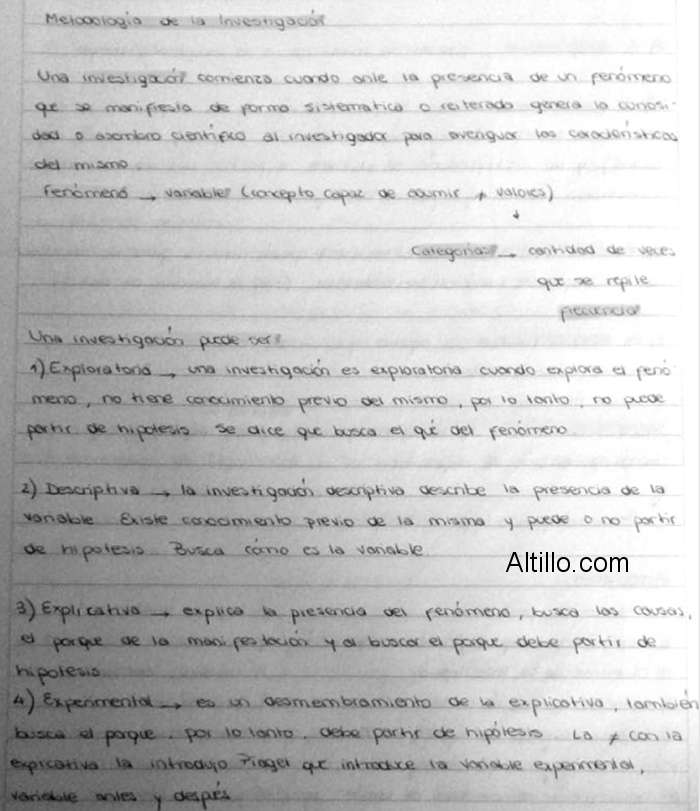 Metodología de la Investigación
Una investigación comienza cuando ante la presencia de un fenómeno
que se manifiesta de forma sistematica o reiterada genera la curiosi-
dad o asombro científico al investigador para averiguar las características
del mismo.
Fenómeno → variable (concepto capaz de asumir ≠ valores)
↓
Categorías → cantidad de veces
que se repite
frecuencia
Una investigación puede ser:
1) Exploratoria → una investigación es exploratoria cuando explora el fenó
meno, no tiene conocimiento previo del mismo, por lo tanto, no puede
partir de hipotesis. Se dice que busca el qué del fenómeno.
2) Descriptiva → la investigación descriptiva describe la presencia de la
variable. Existe conocimiento previo de la misma y puede o no partir
de hipotesis. Busca cómo es la variable.
Altillo.com
3) Explicativa → explica la presencia del fenómeno, busca las causas,
el porque de la manifestación y al buscar el porque, debe partir de
hipotesis.
4) Experimental → es un desmembramiento de la explicativa, también
busca el porque, por lo tanto, debe partir de hipótesis. La ≠ con la
explicativa la introdujo Piaget que introduce la variable experimental,
variable antes y después.